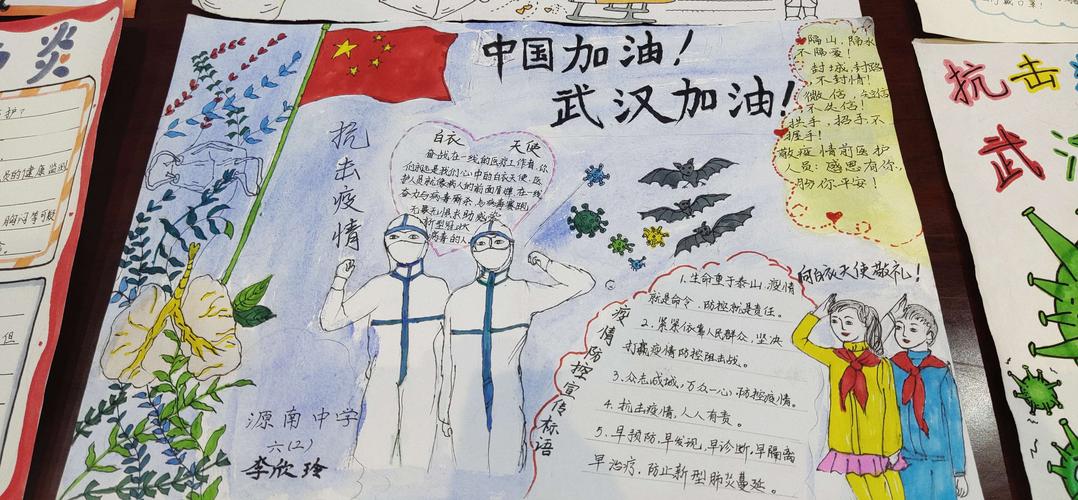 中国加油！
武汉加油！
抗击疫情
白衣 天使
奋战在一线的医疗工作者，你
们永远是我们心中的白衣天使，医
护人员就像病人的前面盾牌，在一线
奋力与病毒厮杀，与病毒赛跑，
无畏无惧求助感染
新型冠状
病毒的人
隔山，隔水
不隔爱！
封城，封路
不封情！
微信，短信
不失信！
拱手，招手，不
握手！
敬疫情前医护
人员：感恩有你，
盼你平安！
向白衣天使敬礼！
疫情防控宣传标语
1.生命重于泰山，疫情
就是命令，防控就是责任。
2.紧紧依靠人民群众，坚决
打赢疫情防控阻击战。
3.众志成城，万众一心，防控疫情。
4.抗击疫情，人人有责。
5.早预防，早发现，早诊断，早隔离
早治疗，防止新型肺炎蔓延。
源南中学
六（2）
李欣玲
炎
护？
员的健康监测
胸闷等可疑
但
抗击
武